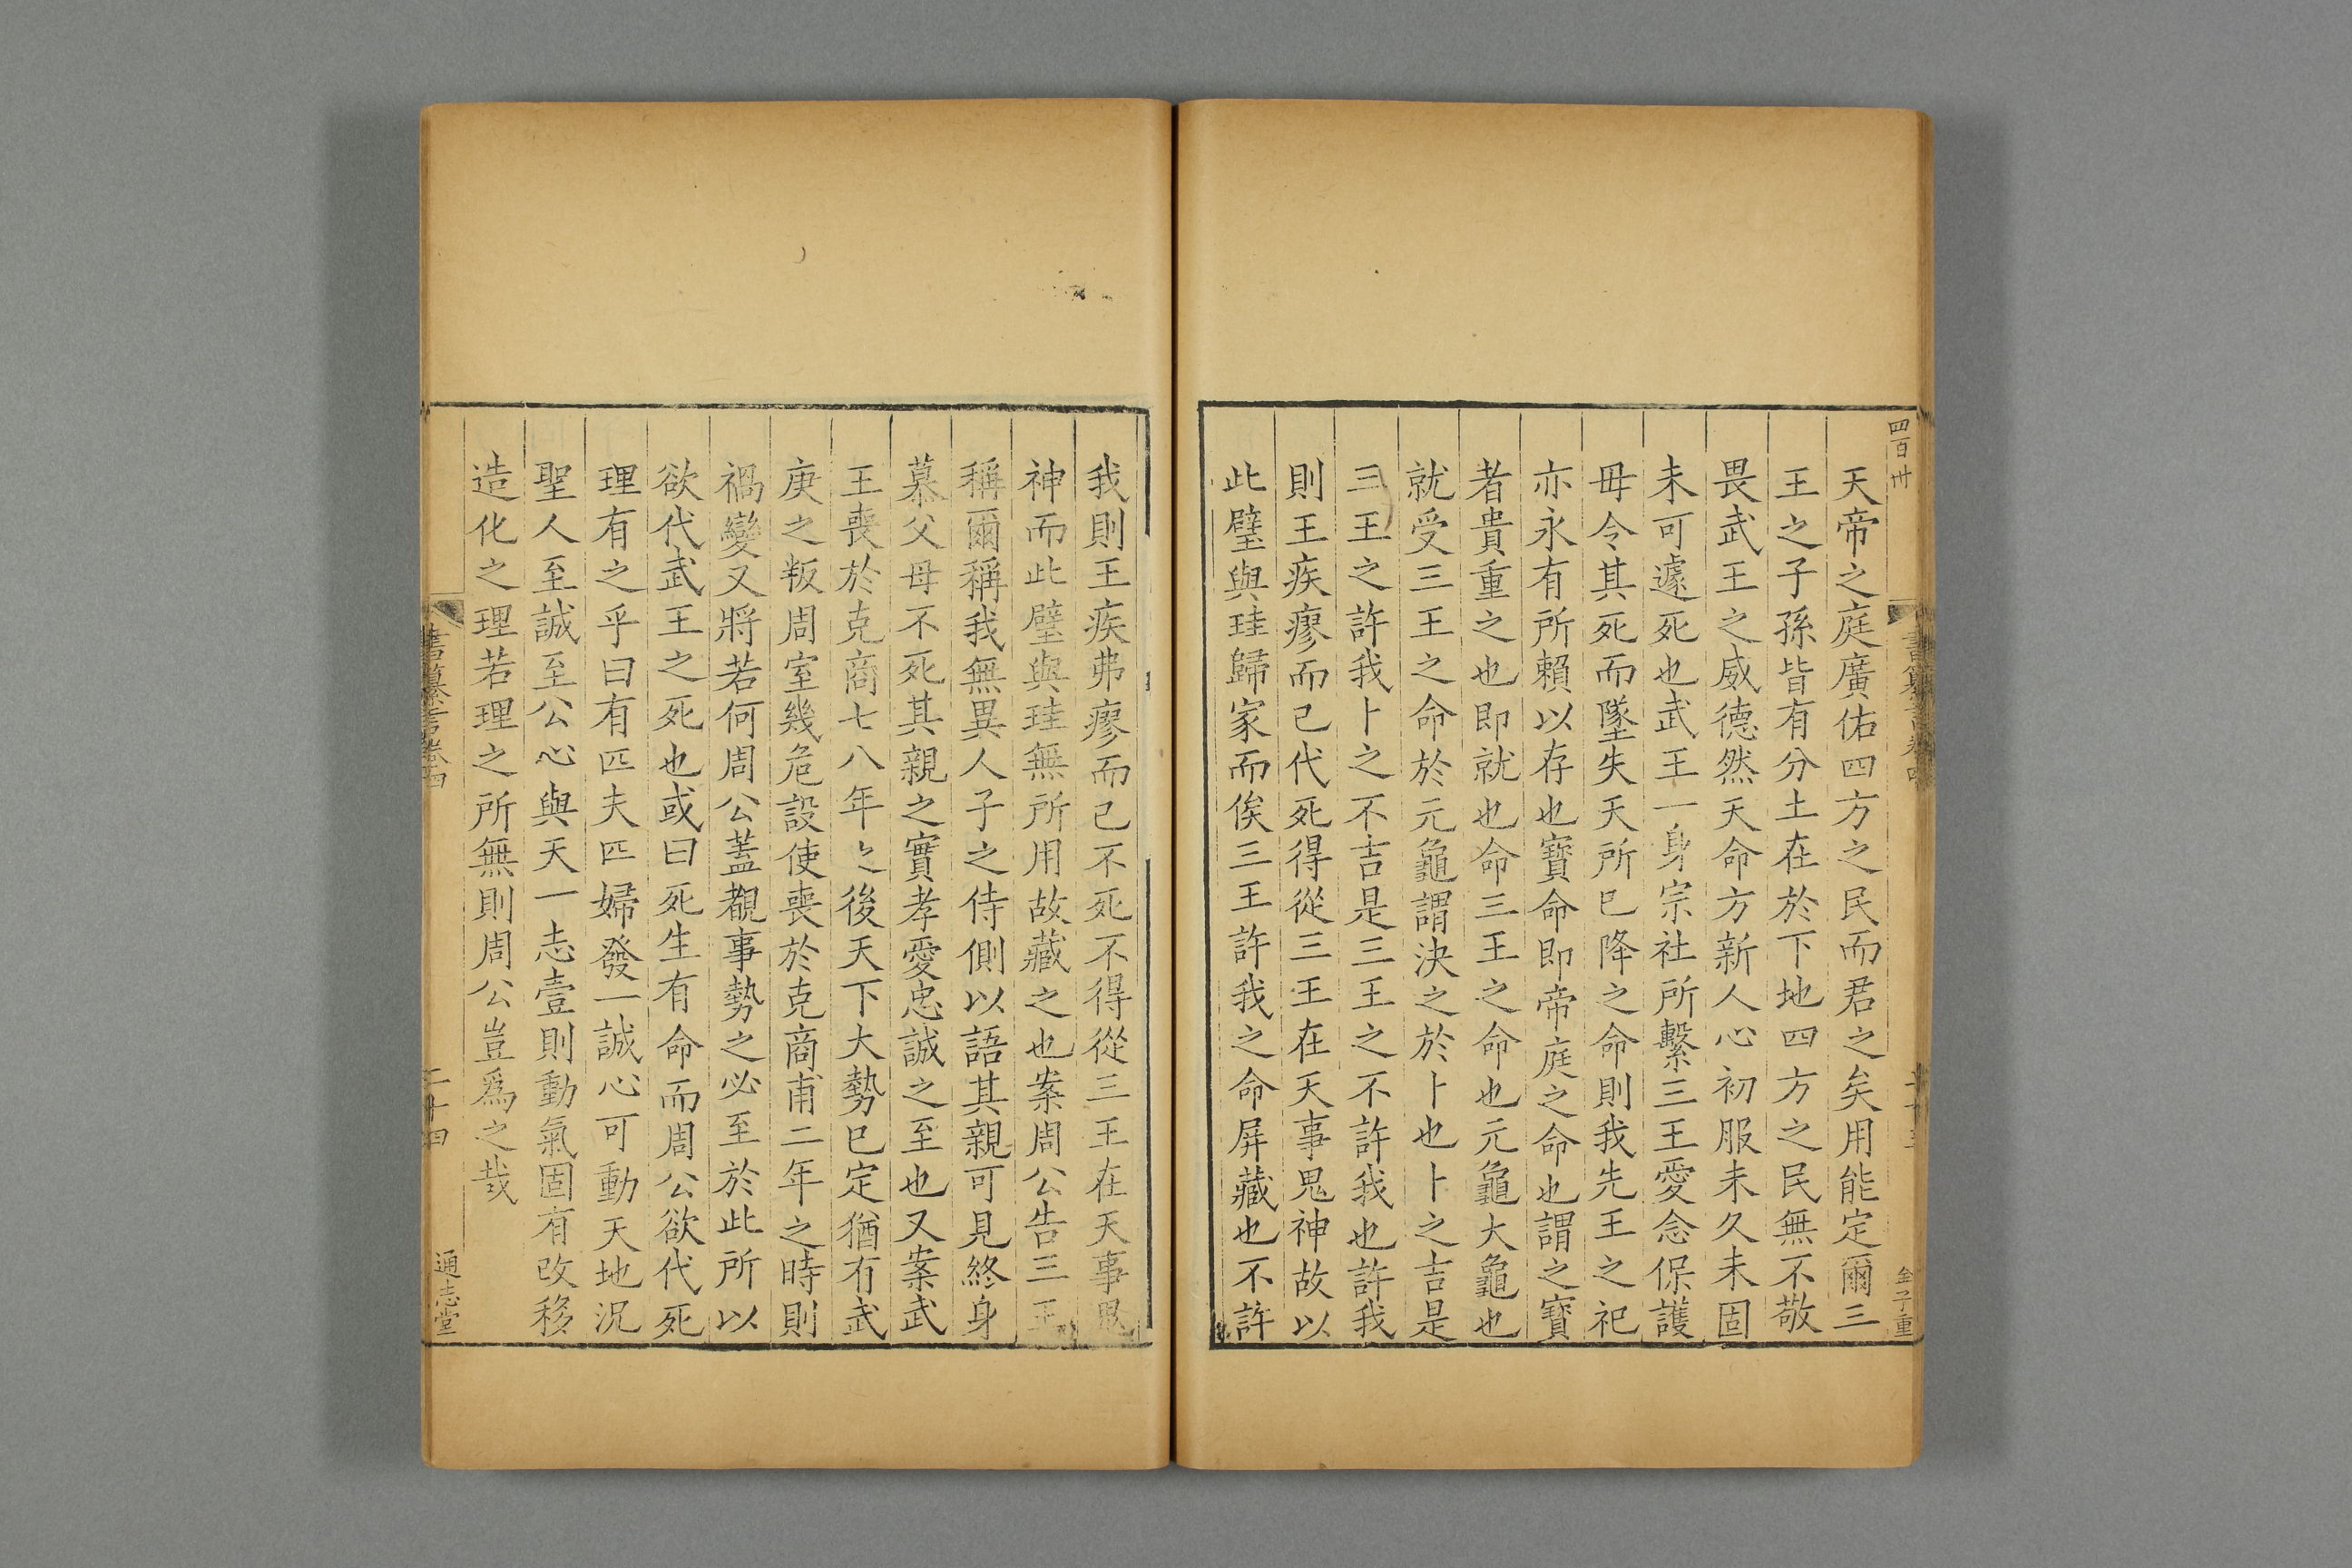 四百卅
書纂言卷四
金子重
天帝之庭廣佑四方之民而君之矣用能定爾三
王之子孫皆有分土在於下地四方之民無不敬
畏武王之威德然天命方新人心初服未久未固
未可遽死也武王一身宗社所繫三王愛念保護
毋令其死而墜失天所已降之命則我先王之祀
亦永有所賴以存也寶命即帝庭之命也謂之寶
者貴重之也即就也命三王之命也元龜大龜也
就受三王之命於元龜謂決之於卜也卜之吉是
三王之許我卜之不吉是三王之不許我也許我
則王疾瘳而已代死得從三王在天事鬼神故以
此璧與珪歸家而俟三王許我之命屏藏也不許
我則王疾弗瘳而已不死不得從三王在天事鬼
神而此璧與珪無所用故藏之也案周公告三王
稱爾稱我無異人子之侍側以語其親可見終身
慕父母不死其親之實孝愛忠誠之至也又案武
王喪於克商七八年〻後天下大勢已定猶有武
庚之叛周室幾危設使喪於克商甫二年之時則
禍變又將若何周公蓋覩事勢之必至於此所以
欲代武王之死也或曰死生有命而周公欲代死
理有之乎曰有匹夫匹婦發一誠心可動天地況
聖人至誠至公心與天一志壹則動氣固有改移
造化之理若理之所無則周公豈爲之哉
書纂言卷四
二十四
通志堂